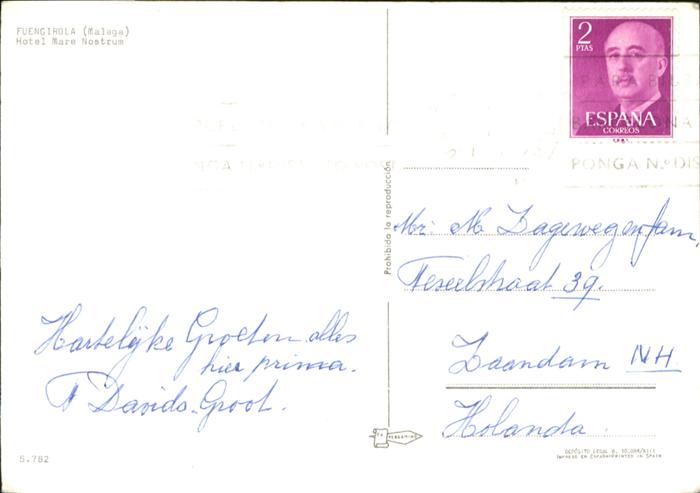 FUENGIROLA (Malaga)
Hotel Mare Nostrum
2
PTAS
ESPAÑA
CORREOS
PARA
PONGA N.º DIS
Prohibida la reproducción
Mr. M Dagewegen fam,
39.
Zaandam NH
Holanda.
Hartelijke Groeten alles
hier prima.
Davids-Groot.
PERGAMINO
S.782
DEPÓSITO LEGAL B.
IMPRESO EN ESPAÑA-PRINTED IN SPAIN